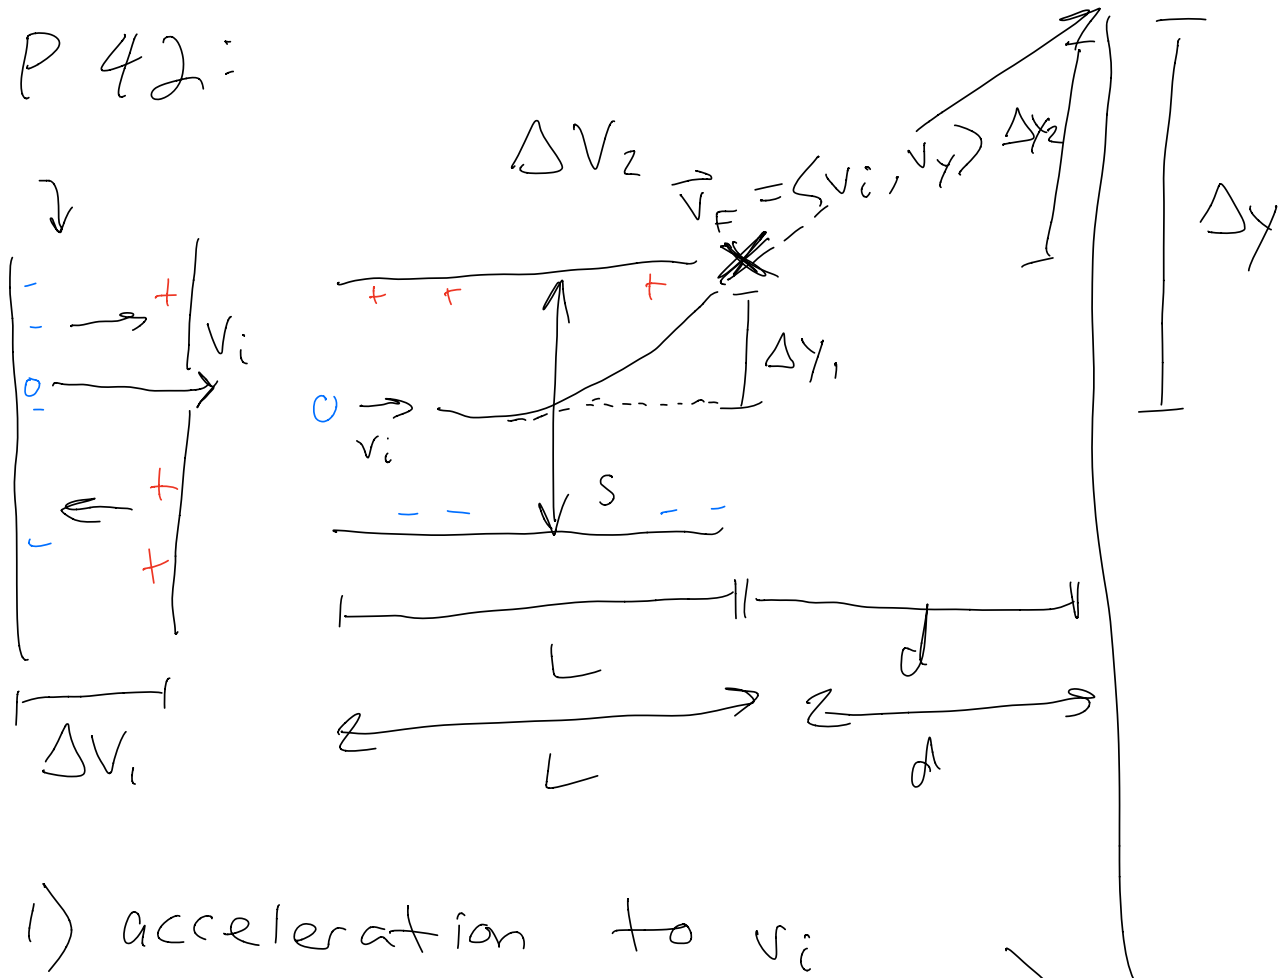 P 42:
ΔV₂
v⃗_F = <v_i, v_y>
Δy₂
Δy
- + + + +
- v_i
o Δy₁
- o
v_i
+ s
- - - -
- +
L d
L d
ΔV₁
1) acceleration to v_i